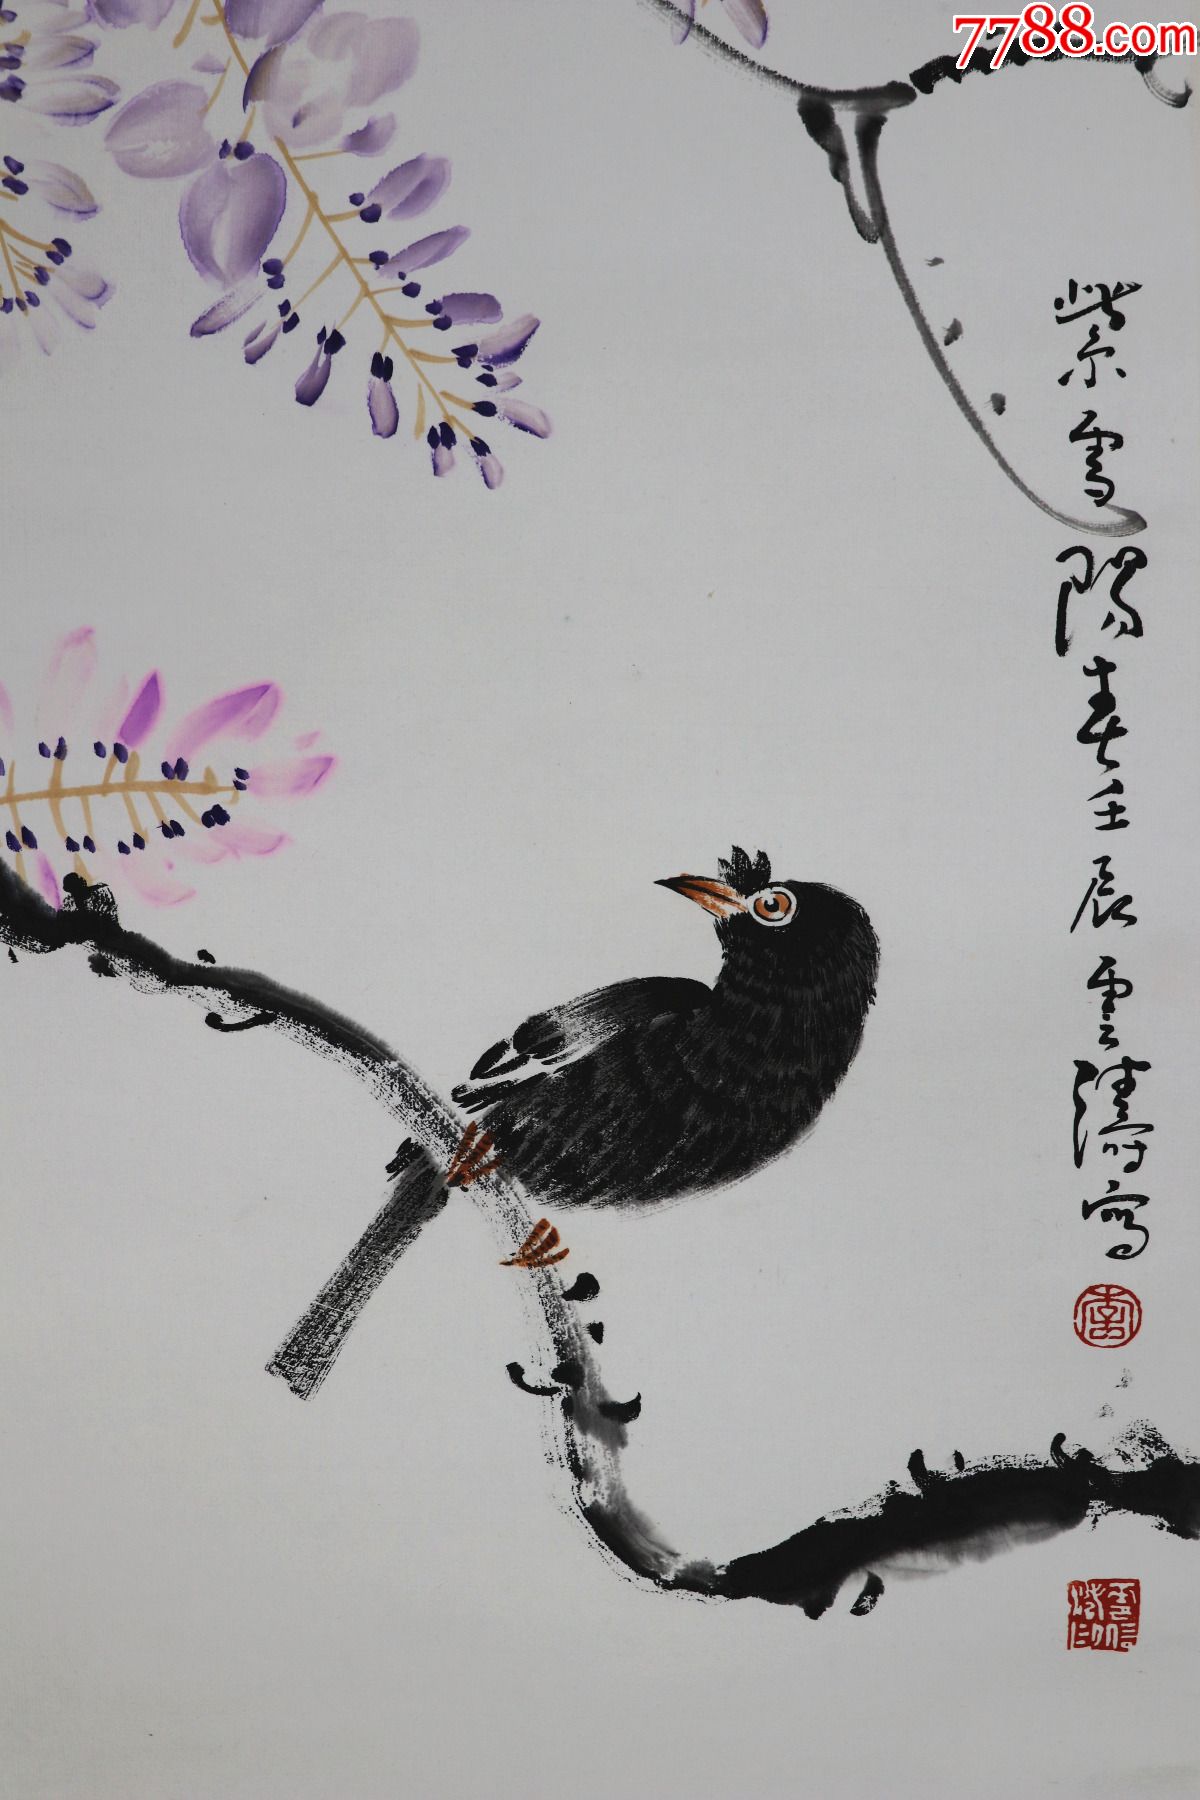 7788.com
紫雪陽春壬辰雲濤寫